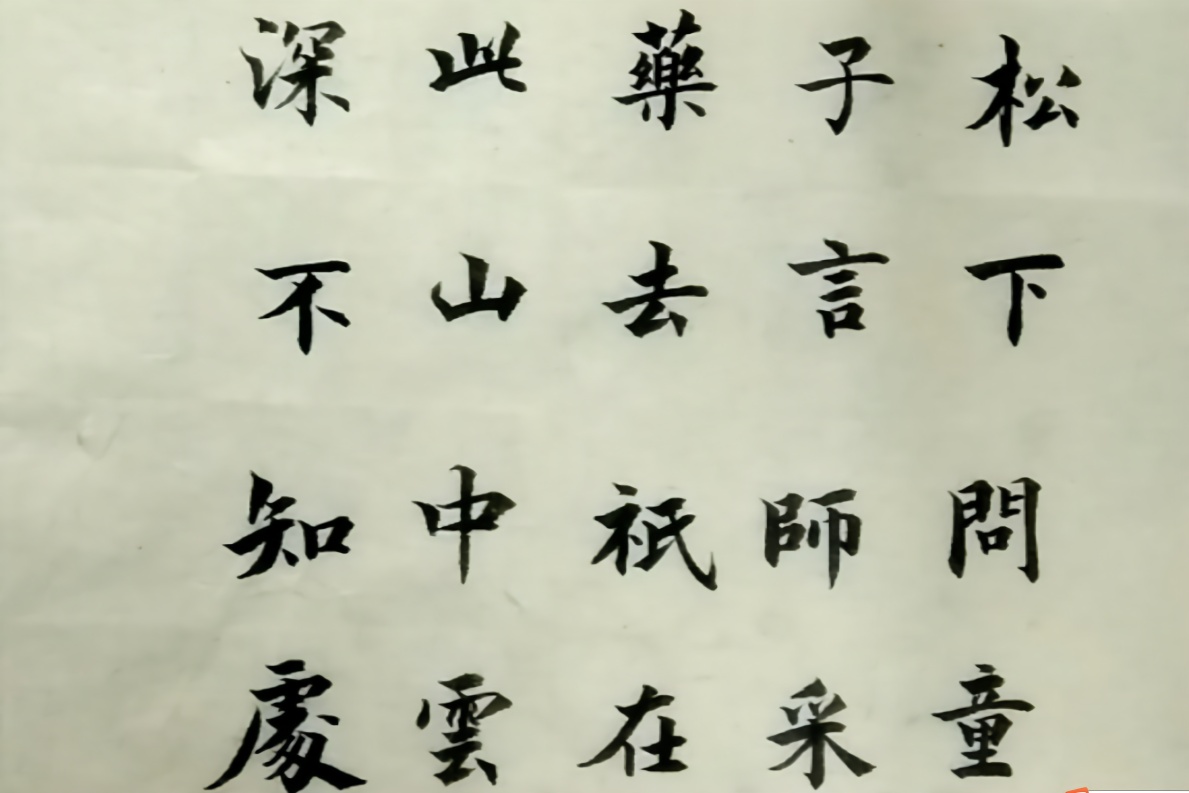 松下問童
子言師采
藥去祇在
此山中雲
深不知處